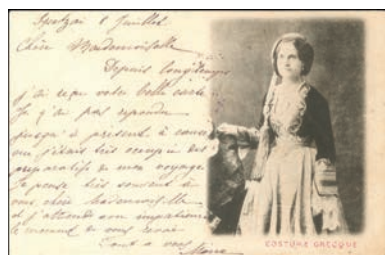 Spetzai 8 Juillet
Chère Mademoiselle
Depuis longtemps
j'ai reçu votre belle carte
Je n'ai pas repondu
jusqu'à présent à cause
que j'étais très occupée des
preparatifs de mon voyage.
Je pense très souvent à
vous chère Mademoiselle
et j'attends avec impatience
le moment de vous revoir
Tout à vous
COSTUME GRECQUE